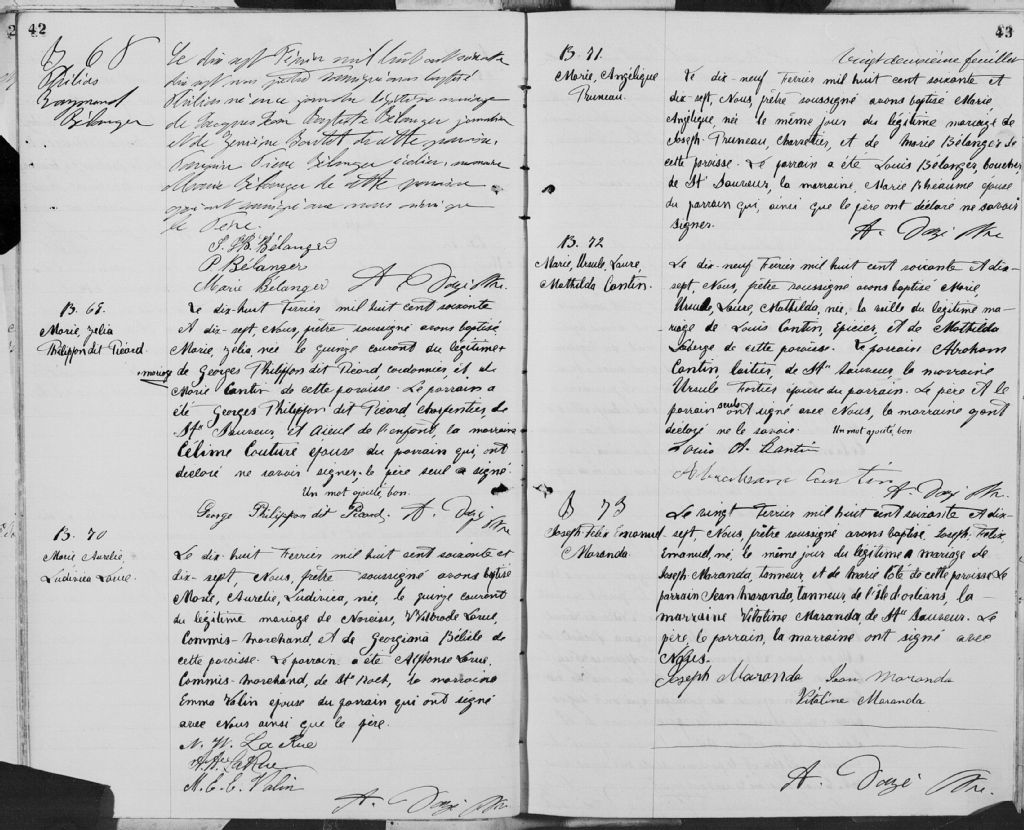 42
B 68
Philias
Raymond
Bélanger
Le dix sept Février mil huit cent soixante
dix sept nous prêtre soussigné avons baptisé
Philias né en ce jour du légitime mariage
de Jacques Jean Baptiste Bélanger journalier
et de de cette paroisse.
Parrain Pierre Bélanger écolier, marraine
Marie Bélanger de cette paroisse
qui ont signé avec nous ainsi que
le Père.
J. Bte Bélanger
P. Bélanger
Marie Bélanger
A. Dazé Ptre.
B. 69.
Marie, Zélia
Philippon dit Picard.
Le dix-huit Février mil huit cent soixante
et dix-sept, Nous, prêtre soussigné avons baptisé
Marie, Zélia, née le quinze courant du légitime +
mariage
de Georges Philippon dit Picard cordonnier, et de
Marie Cantin de cette paroisse. Le parrain a
été Georges Philippon dit Picard charpentier, de
St. Sauveur, et aïeul de l'enfant, la marraine
Célime Couture épouse du parrain qui, ont
déclaré ne savoir signer, le père seul a signé.
Un mot ajouté, bon.
George Philippon dit Picard. A. Dazé Ptre
B. 70
Marie Aurélie
Ludivica Larue.
Le dix huit Février mil huit cent soixante et
dix-sept, Nous, prêtre soussigné avons baptisé
Marie, Aurélie, Ludivica, née, le quinze courant
du légitime mariage de Narcisse, Larue,
Commis-marchand, et de Georgiana Bélisle de
cette paroisse. Le parrain a été Alfonse Larue,
Commis-marchand, de St. Roch, la marraine
Emma Valin épouse du parrain qui ont signé
avec Nous ainsi que le père.
N. W. LaRue
LaRue
M. E. E. Valin
A. Dazé Ptre.
43
vingt deuxième feuillet
B. 71
Marie, Angélique
Pruneau.
Le dix-neuf Février mil huit cent soixante et
dix-sept, Nous, prêtre soussigné avons baptisé Marie,
Angélique, née le même jour du légitime mariage de
Joseph Pruneau, charretier, et de Marie Bélanger de
cette paroisse. Le parrain a été Louis Bélanger, boucher,
de St. Sauveur, la marraine, Marie Bheaume épouse
du parrain qui, ainsi que le père ont déclaré ne savoir
signer.
A. Dazé Ptre
B. 72
Marie, Ursule, Laure,
Mathilda Cantin.
Le dix-neuf Février mil huit cent soixante et dix-
sept, Nous, prêtre soussigné avons baptisé Marie,
Ursule, Laure, Mathilda, née, la veille du légitime ma-
riage de Louis Cantin, épicier, et de Mathilda
Laberge de cette paroisse. Le parrain Abraham
Cantin, laitier, de St. Sauveur la marraine
Ursule Fortier épouse du parrain. Le père et le
parrain seuls ont signé avec Nous, la marraine ayant
déclaré ne le savoir. Un mot ajouté, bon.
Louis A. Cantin
Abraham Cantin
A. Dazé Ptre.
B 73
Joseph Félix Emanuel
Maranda
Le vingt Février mil huit cent soixante et dix-
sept, Nous, prêtre soussigné avons baptisé, Joseph, Félix,
Emanuel, né, le même jour du légitime mariage de
Joseph Maranda, tanneur, et de Marie Coté de cette paroisse. Le
parrain Jean Maranda, tanneur, de l'isle d'orléans, la
marraine Vitaline Maranda, de St. Sauveur. Le
père, le parrain, la marraine ont signé avec
Nous.
Joseph Maranda Jean Maranda
Vitaline Maranda
A. Dazé Ptre.